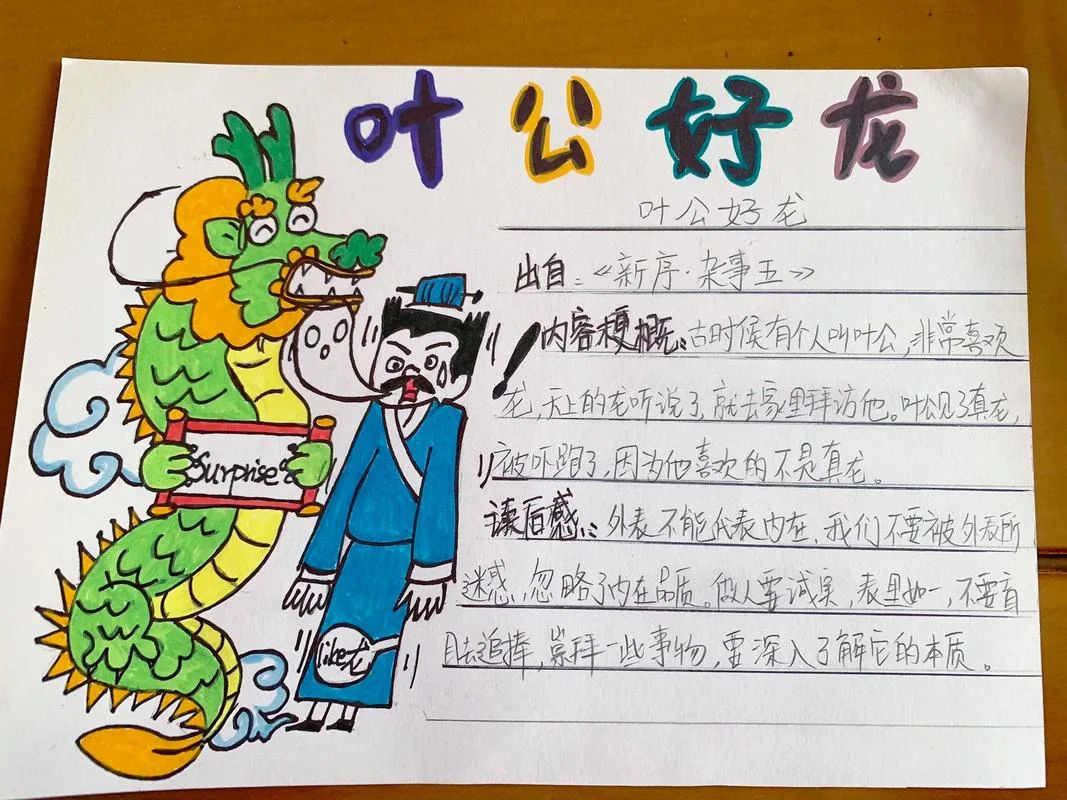 叶公好龙
叶公好龙
出自：《新序·杂事五》
内容梗概：古时候有个人叫叶公，非常喜欢
龙，天上的龙听说了，就去家里拜访他。叶公见了真龙，
被吓跑了，因为他喜欢的不是真龙。
读后感：外表不能代表内在，我们不要被外表所
迷惑，忽略了内在品质。做人要诚实，表里如一，不要盲
目去追捧，崇拜一些事物，要深入了解它的本质。
Surprise
like龙